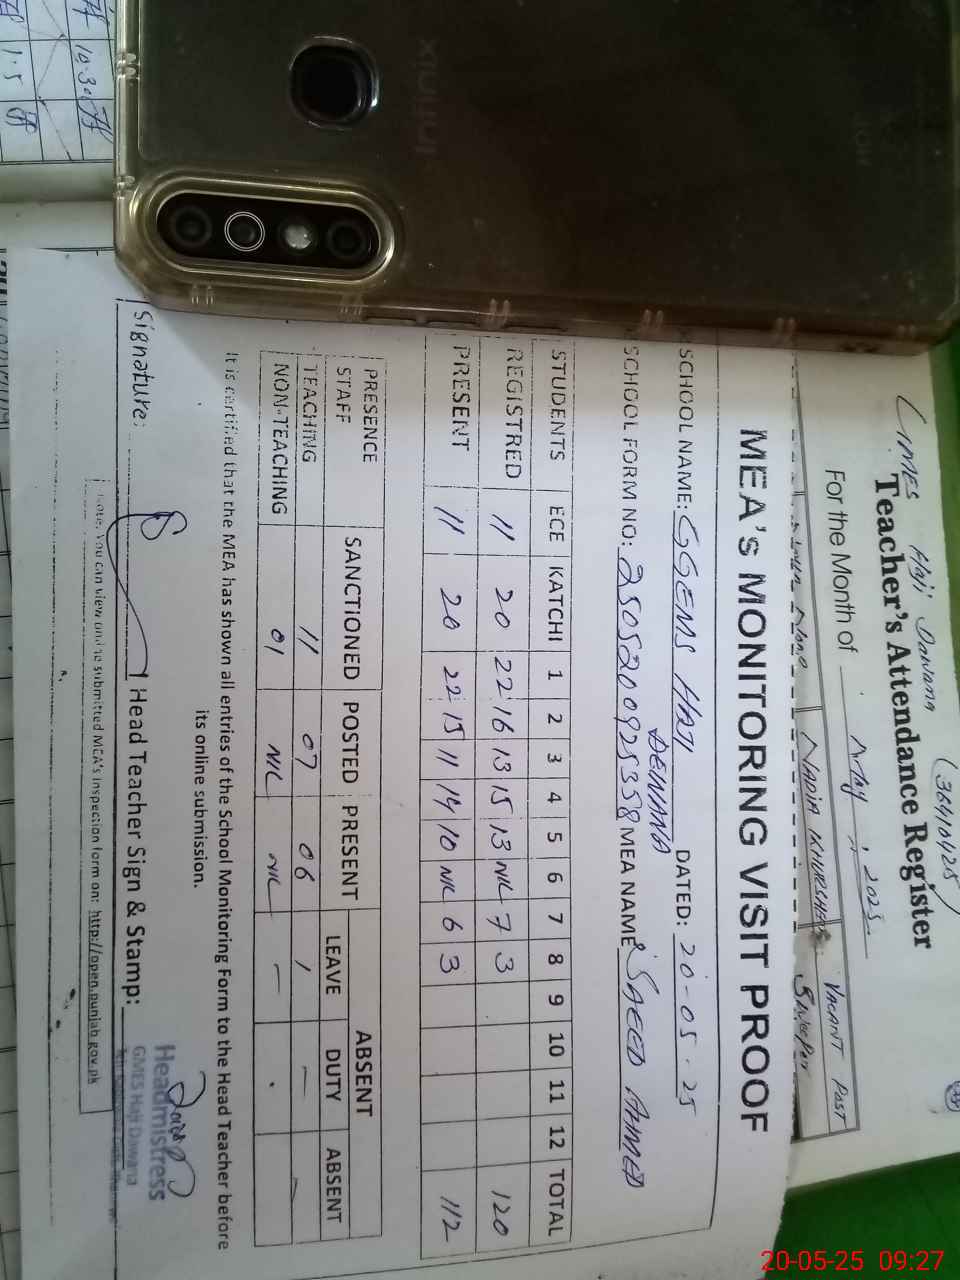 Teacher's Attendance Register
(36410425)
For the Month of May, 2025
NADIA KHURSHEED
VACANT POST
Sweeper
MEA'S MONITORING VISIT PROOF
SCHOOL NAME: GGEMS HAJI DEWANA DATED: 20-05-25
SCHOOL FORM NO: 2505200925358 MEA NAME: SAEED AHMED
STUDENTS ECE KATCHI 1 2 3 4 5 6 7 8 9 10 11 12 TOTAL
REGISTRED 11 20 22 16 13 15 13 NIL 7 3 120
PRESENT 11 20 22 15 11 14 10 NIL 6 3 112
PRESENCE STAFF SANCTIONED POSTED PRESENT ABSENT
LEAVE DUTY ABSENT
TEACHING 11 07 06 1 — —
NON-TEACHING 01 NIL NIL —
It is certified that the MEA has shown all entries of the School Monitoring Form to the Head Teacher before
its online submission.
Signature: Head Teacher Sign & Stamp:
Headmistress
GMES Haji Dawana
Note: You can view online submitted MEA's Inspection form on: http://open.punjab.gov.pk
Infinix
10:30
1.5
20-05-25 09:27